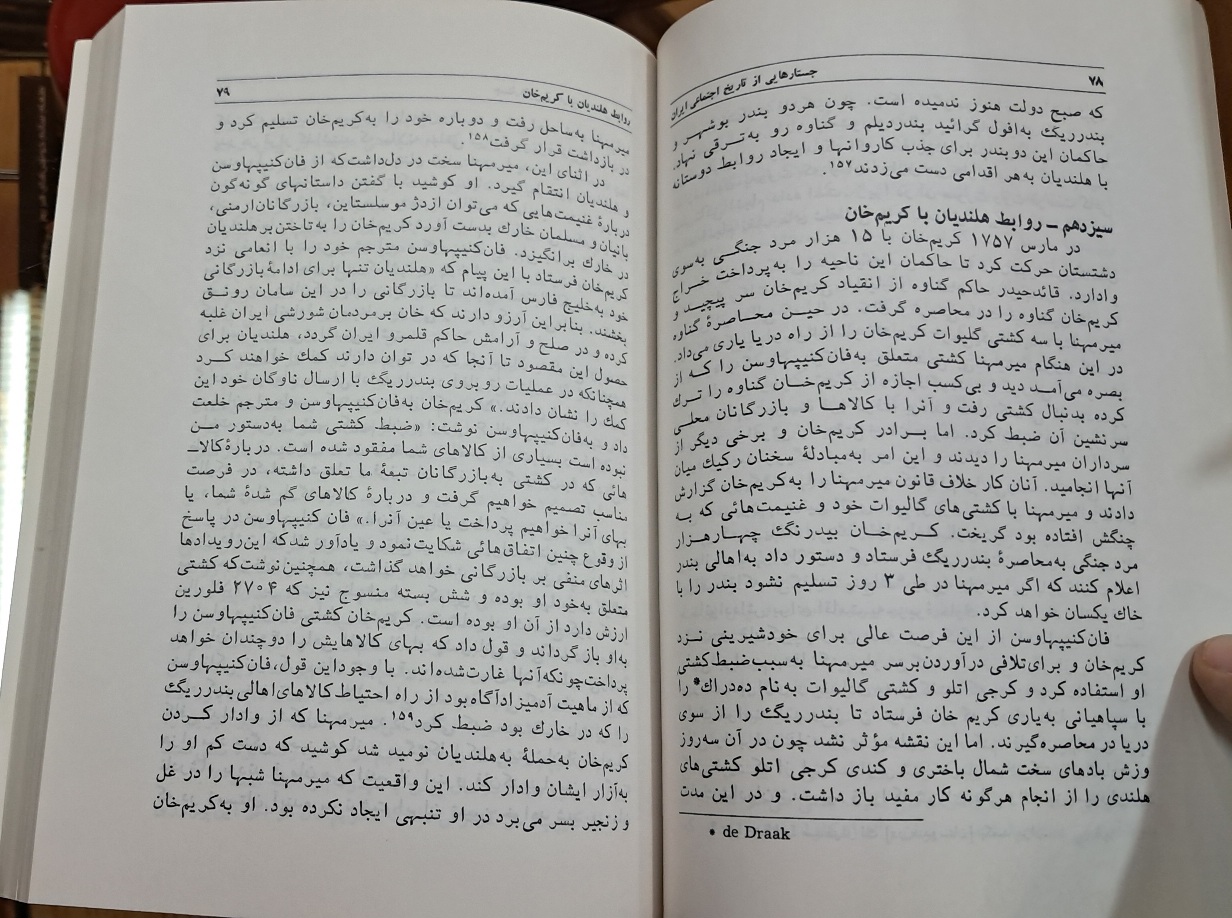 ۷۸
جستارهایی از تاریخ اجتماعی ایران
که صبح دولت هنوز ندمیده است. چون هردو بندر بوشهر و
بندرریگ به‌افول گرائید بندردیلم و گناوه رو به‌ترقی نهاد.
حاکمان این دوبندر برای جذب کاروانها و ایجاد روابط دوستانه
با هلندیان به‌هر اقدامی دست می‌زدند۱۵۷.
سیزدهم ــ روابط هلندیان با کریم‌خان
در مارس ۱۷۵۷ کریم‌خان با ۱۵ هزار مرد جنگی به‌سوی
دشتستان حرکت کرد تا حاکمان این ناحیه را به‌پرداخت خراج
وادارد. قائدحیدر حاکم گناوه از انقیاد کریم‌خان سر پیچید و
کریم‌خان گناوه را در محاصره گرفت. در حین محاصرهٔ گناوه
میرمهنا با سه کشتی گلیوات کریم‌خان را از راه دریا یاری می‌داد.
در این هنگام میرمهنا کشتی متعلق به‌فان‌کنیپهاوسن را که از
بصره می‌آمد دید و بی‌کسب اجازه از کریم‌خان گناوه را ترك
کرده بدنبال کشتی رفت و آنرا با کالاها و بازرگانان محلی
سرنشین آن ضبط کرد. اما برادر کریم‌خان و برخی دیگر از
سرداران میرمهنا را دیدند و این امر به‌مبادلهٔ سخنان رکیك میان
آنها انجامید. آنان کار خلاف قانون میرمهنا را به‌کریم‌خان گزارش
دادند و میرمهنا با کشتی‌های گالیوات خود و غنیمت‌هائی که به
چنگش افتاده بود گریخت. کریم‌خان بیدرنگ چهارهزار
مرد جنگی به‌محاصرهٔ بندرریگ فرستاد و دستور داد به‌اهالی بندر
اعلام کنند که اگر میرمهنا در طی ۳ روز تسلیم نشود بندر را با
خاك یکسان خواهد کرد.
فان‌کنیپهاوسن از این فرصت عالی برای خودشیرینی نزد
کریم‌خان و برای‌تلافی درآوردن‌برسر میرمهنا به‌سبب‌ضبط‌کشتی
او استفاده کرد و کرجی اتلو و کشتی گالیوات به‌نام ده‌دراك* را
با سپاهیانی به‌یاری کریم خان فرستاد تا بندرریگ را از سوی
دریا در محاصره‌گیرند. اما این نقشه مؤثر نشد چون در آن سه‌روز
وزش بادهای سخت شمال باختری و کندی کرجی اتلو کشتی‌های
هلندی را از انجام هرگونه کار مفید باز داشت. و در این مدت
* de Draak
روابط هلندیان با کریم‌خان
۷۹
میرمهنا به‌ساحل رفت و دوباره خود را به‌کریم‌خان تسلیم کرد و
در بازداشت قرار گرفت۱۵۸.
در اثنای این، میرمهنا سخت در دل‌داشت‌که از فان‌کنیپهاوسن
و هلندیان انتقام گیرد. او کوشید با گفتن داستانهای گونه‌گون
دربارهٔ غنیمت‌هایی که می‌توان ازدژ موسلستاین، بازرگانان‌ارمنی،
بانیان و مسلمان خارك بدست آورد کریم‌خان را به‌تاختن‌بر‌هلندیان
در خارك برانگیزد. فان‌کنیپهاوسن مترجم خود را با انعامی نزد
کریم‌خان فرستاد با این پیام که «هلندیان تنها برای ادامهٔ بازرگانی
خود به‌خلیج فارس آمده‌اند تا بازرگانی را در این سامان رونق
بخشند. بنابراین آرزو دارند که خان برمردمان شورشی ایران غلبه
کرده و در صلح و آرامش حاکم قلمرو ایران گردد، هلندیان برای
حصول این مقصود تا آنجا که در توان دارند کمك خواهند کرد
همچنانکه در عملیات رو بروی بندرریگ با ارسال ناوگان خود این
کمك را نشان دادند.» کریم‌خان به‌فان‌کنیپهاوسن و مترجم خلعت
داد و به‌فان‌کنیپهاوسن نوشت: «ضبط کشتی شما به‌دستور من
نبوده است بسیاری از کالاهای شما مفقود شده است. دربارهٔ کالاــ
هائی که در کشتی به‌بازرگانان تبعهٔ ما تعلق داشته، در فرصت
مناسب تصمیم خواهیم گرفت و دربارهٔ کالاهای گم شدهٔ شما، یا
بهای آنرا خواهیم پرداخت یا عین آنرا.» فان کنیپهاوسن در پاسخ
از وقوع چنین اتفاق‌هائی شکایت‌نمود و یادآور شدکه این‌رویدادها
اثرهای منفی بر بازرگانی خواهد گذاشت، همچنین‌نوشت‌که کشتی
متعلق به‌خود او بوده و شش بسته منسوج نیز که ۲۷۰۴ فلورین
ارزش دارد از آن او بوده است. کریم‌خان کشتی فان‌کنیپهاوسن را
به‌او باز گرداند و قول داد که بهای کالاهایش را دوچندان خواهد
پرداخت‌چونکه‌آنها غارت‌شده‌اند. با وجوداین قول،فان‌کنیپهاوسن
که از ماهیت آدمیزادآگاه‌بود از راه احتیاط کالاهای‌اهالی‌بندرریگ
را که در خارك بود ضبط کرد۱۵۹. میرمهنا که از وادار کردن
کریم‌خان به‌حملهٔ به‌هلندیان نومید شد کوشید که دست کم او را
به‌آزار ایشان وادار کند. این واقعیت که میرمهنا شبها را در غل
و زنجیر بسر می‌برد در او تنبهی ایجاد نکرده بود. او به‌کریم‌خان